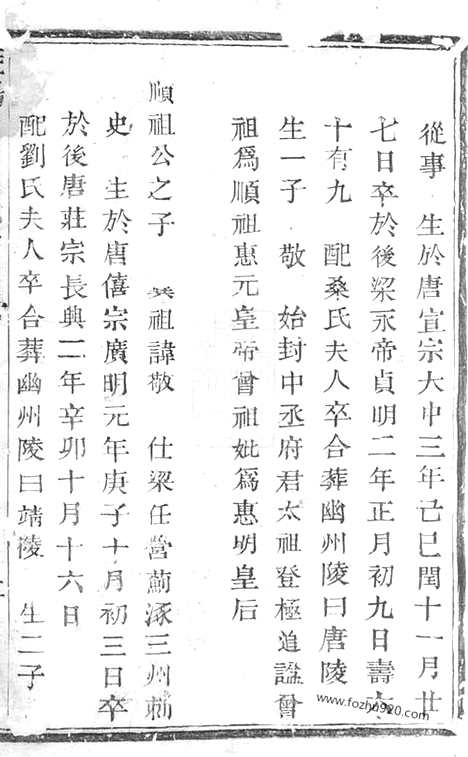 從事 生於唐宣宗大中三年己巳閏十一月廿
七日卒於後梁末帝貞明二年正月初九日壽六
十有九 配桑氏夫人卒合葬幽州陵曰唐陵
生一子 敬 始封中丞府君太祖登極追諡曾
祖爲順祖惠元皇帝曾祖妣爲惠明皇后
順祖公之子 祖諱敬 仕梁任營薊涿三州刺
史 生於唐僖宗廣明元年庚子十月初三日卒
於後唐莊宗長興二年辛卯十月十六日
配劉氏夫人卒合葬幽州陵曰靖陵 生二子
www.fozhu920.com